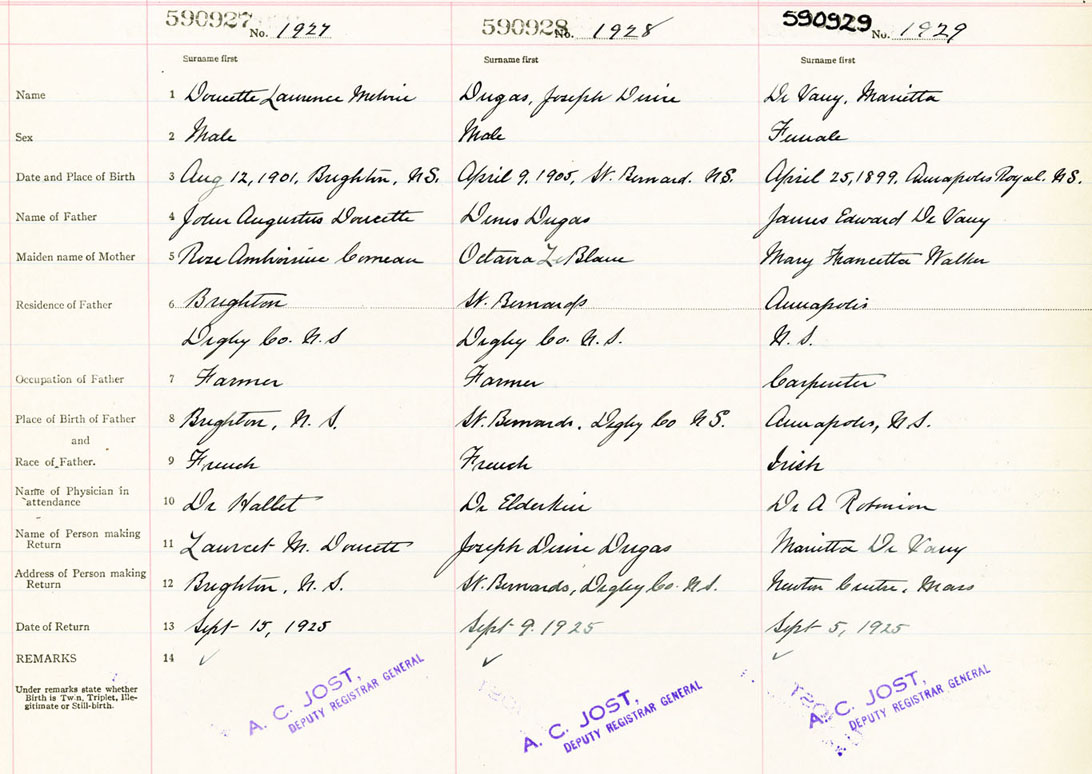 590927 No. 1927 590928 No. 1928 590929 No. 1929
Surname first Surname first Surname first
Name 1 Doucette Laurence Melvin Dugas, Joseph Desire De Vany, Marietta
Sex 2 Male Male Female
Date and Place of Birth 3 Aug 12, 1901, Brighton, N.S. April 9, 1905, St. Bernard. N.S. April 25, 1899, Annapolis Royal. N.S.
Name of Father 4 John Augustus Doucette Denis Dugas James Edward De Vany
Maiden name of Mother 5 Rose Comeau Octavia Le Blanc Mary Francetta Walker
Residence of Father 6 Brighton St. Bernards Annapolis
Digby Co. N.S Digby Co. N.S. N.S.
Occupation of Father 7 Farmer Farmer Carpenter
Place of Birth of Father 8 Brighton, N.S. St. Bernards, Digby Co N.S. Annapolis, N.S.
and
Race of Father. 9 French French Irish
Name of Physician in
attendance 10 Dr Hallet Dr Elderkin Dr A Robinson
Name of Person making
Return 11 M. Doucett Joseph Desire Dugas Marietta De Vany
Address of Person making
Return 12 Brighton, N.S. St. Bernards, Digby Co. N.S. Newton Centre, Mass
Date of Return 13 Sept 15, 1925 Sept 9. 1925 Sept 5, 1925
REMARKS 14 ✓ ✓ ✓
Under remarks state whether
Birth is Twin, Triplet, Ille-
gitimate or Still-birth.
A. C. JOST,
DEPUTY REGISTRAR GENERAL
A. C. JOST,
DEPUTY REGISTRAR GENERAL
A. C. JOST,
DEPUTY REGISTRAR GENERAL